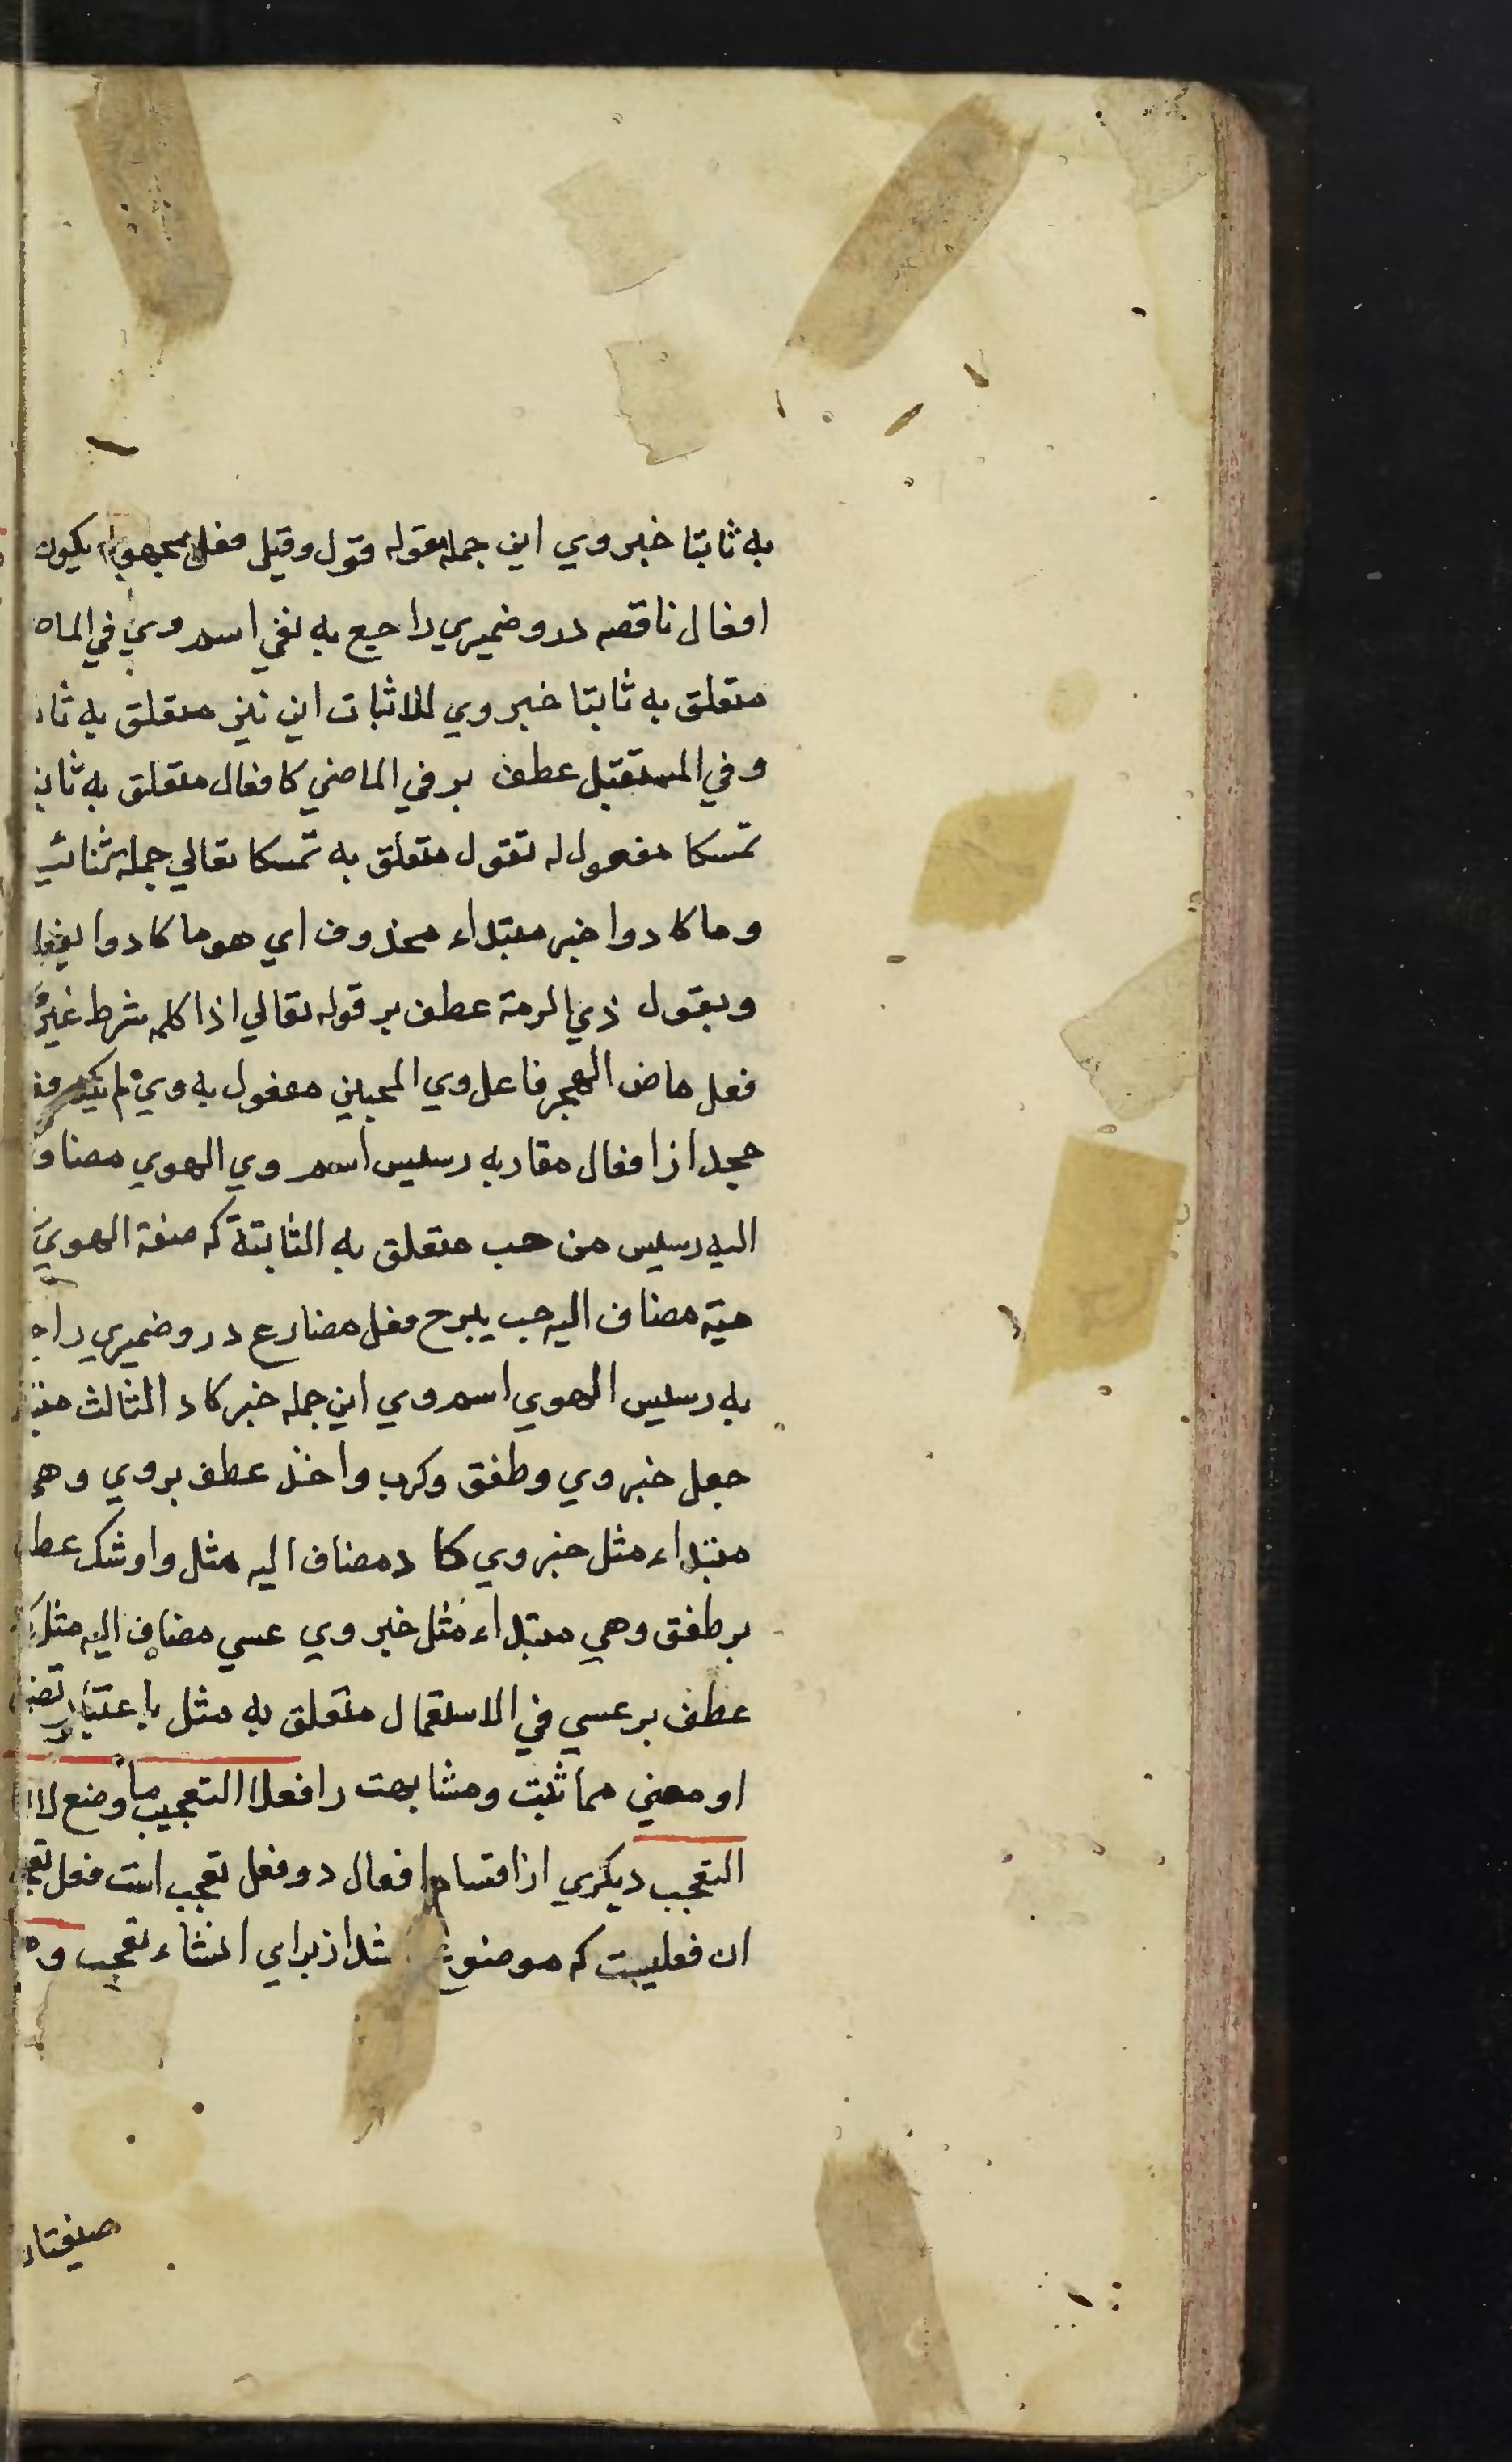 به ثابتا خبر وي اين جمله مقوله قول وقيل فعل مجهول يكون
افعال ناقصه درو ضميري راجع به نفي اسم وي في الماض
متعلق به ثابتا خبر وي للاثبات اين نيز متعلق به ثا
وفي المستقبل عطف بر في الماضي كافعال متعلق به ثاب
تمسكا مفعول له تقول متعلق به تمسكا تعالي جمله ثنائيه
وما كادوا خبر مبتداء محذوف اي هو ما كادوا يفعلو
وبقول ذي الرمة عطف بر قوله تعالي اذا كلمه شرط غير
فعل ماض الهجر فاعل وي المحبين مفعول به وي لم يكد
جحد از افعال مقاربه رسيس اسم وي الهوي مضاف
اليه رسيس من حب متعلق به الثابتة كه صفة الهوي
مية مضاف اليه حب يبرح فعل مضارع درو ضميري راج
به رسيس الهوي اسم وي اين جمله خبر كاد الثالث مبتد
جعل خبر وي وطفق وكرب واخذ عطف بر وي وهي
مبتداء مثل خبر وي كاد مضاف اليه مثل واوشك عطف
بر طفق وهي مبتداء مثل خبر وي عسي مضاف اليه مثل
عطف بر عسي في الاستعمال متعلق به مثل باعتبار تضم
او معني مماثبت ومشابهت را فعلا التعجب ما وضع لا
التعجب ديكري از اقسام افعال دو فعل تعجب است فعل تعج
ان فعليست كه موضوع شد از براي انشاء تعجب و
صيغتا